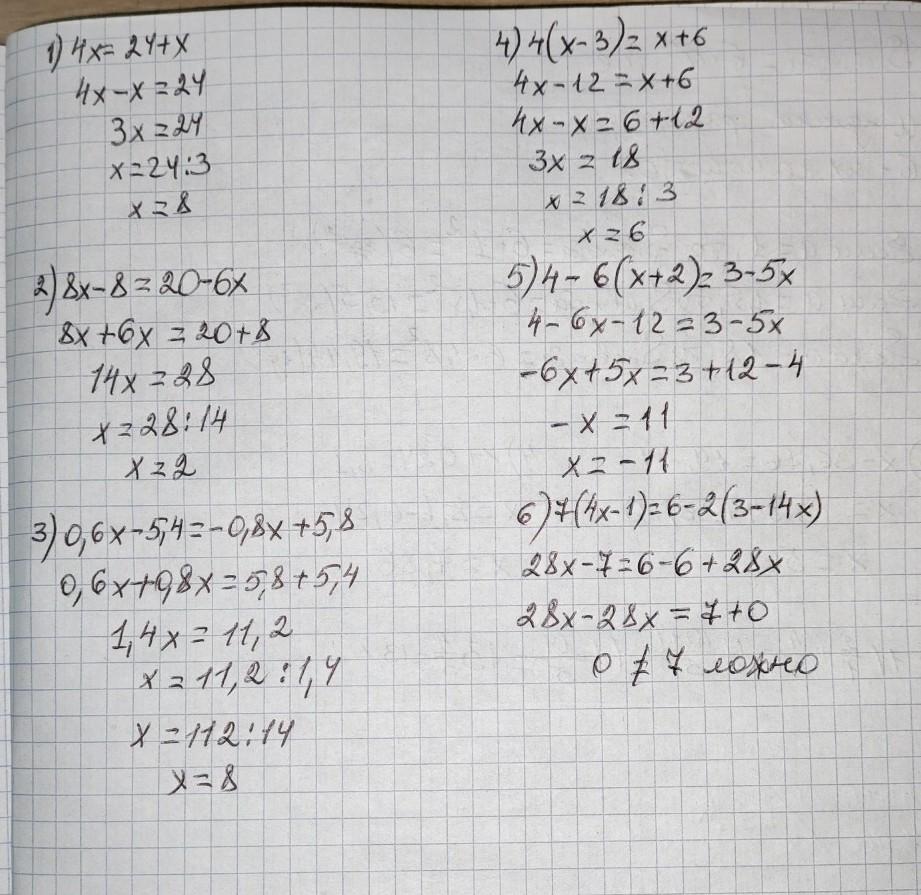 1) 4x = 24+x
4x-x = 24
3x = 24
x = 24:3
x = 8
2) 8x-8 = 20-6x
8x+6x = 20+8
14x = 28
x = 28:14
x = 2
3) 0,6x-5,4 = -0,8x+5,8
0,6x+0,8x = 5,8+5,4
1,4x = 11,2
x = 11,2:1,4
x = 112:14
x = 8
4) 4(x-3) = x+6
4x-12 = x+6
4x-x = 6+12
3x = 18
x = 18:3
x = 6
5) 4-6(x+2) = 3-5x
4-6x-12 = 3-5x
-6x+5x = 3+12-4
-x = 11
x = -11
6) 7(4x-1) = 6-2(3-14x)
28x-7 = 6-6+28x
28x-28x = 7+0
0 ≠ 7 ложно